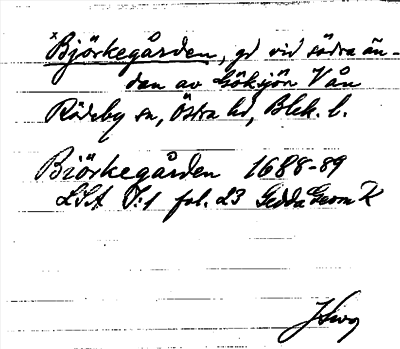 ×Björkegården, gd vid södra än-
dan av Göksjön V ån
Rödeby sn, Östra hd, Blek. l.
Biörkegården 1688-89
LSA T:1 fol. 23 Gedda Geom K